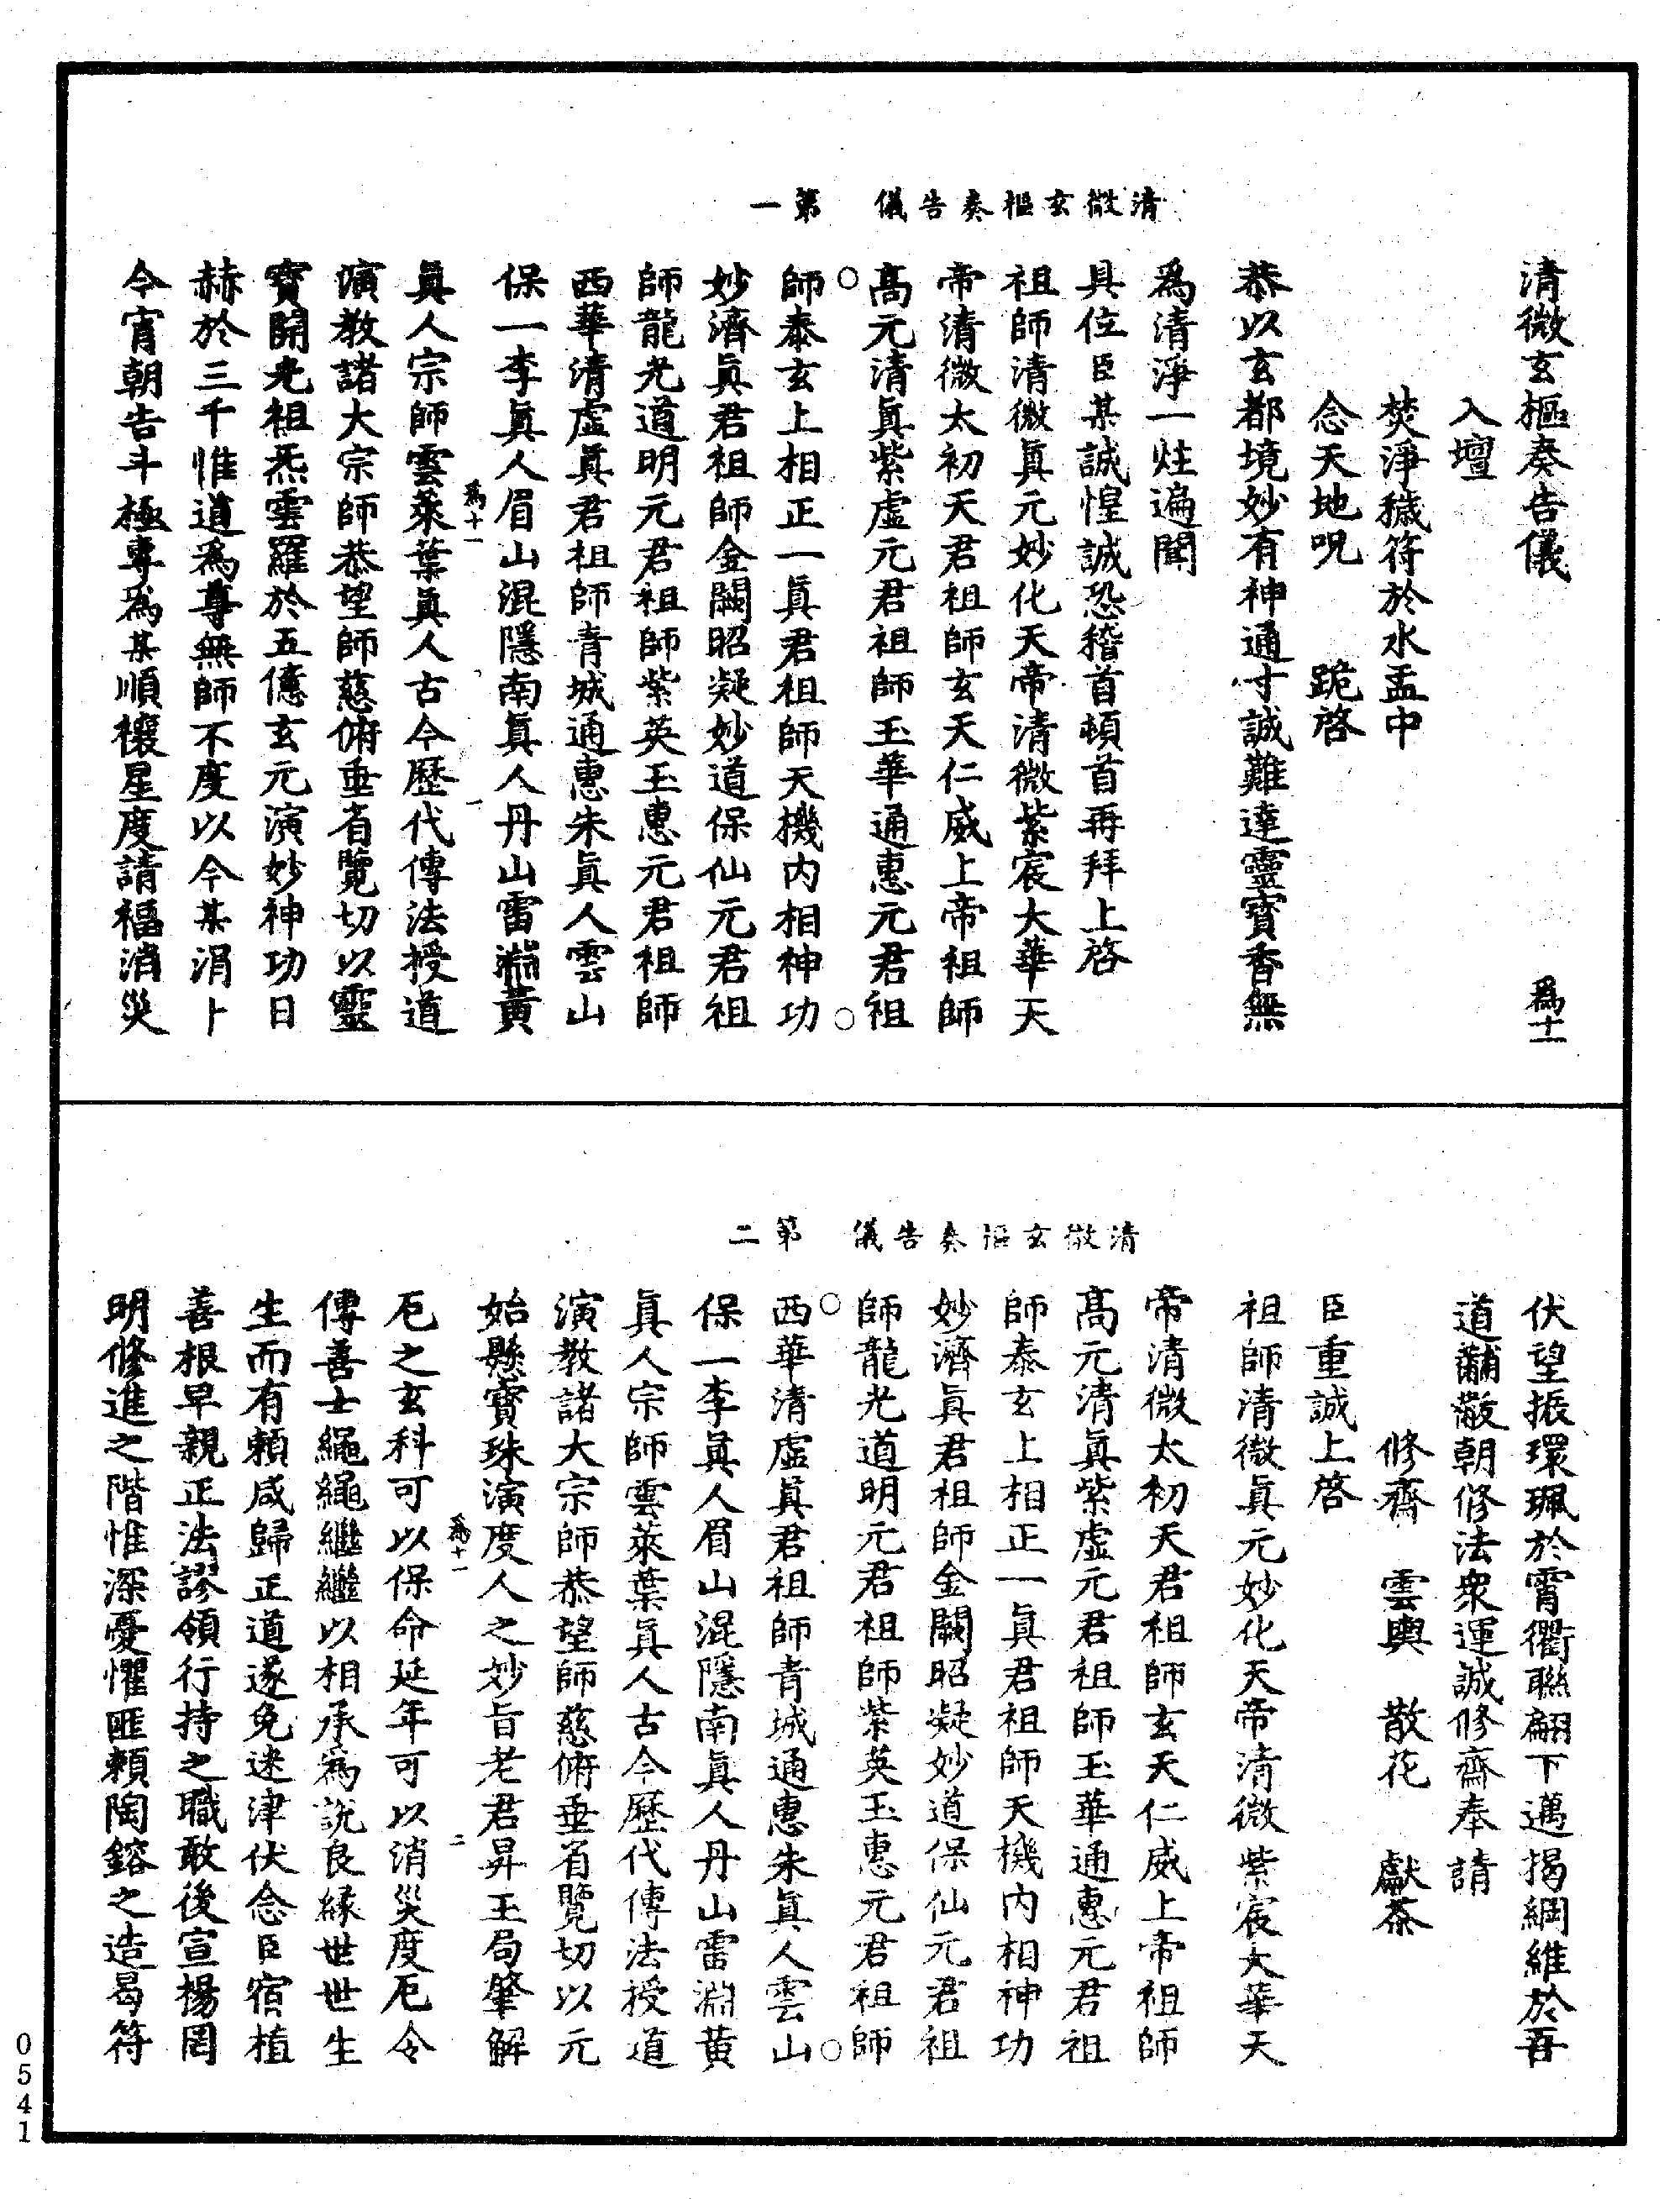 清微玄樞奏告儀　第一
清微玄樞奏告儀　爲十一
入壇
焚淨穢符於水盂中
念天地呪　跪啓
恭以玄都境妙有神通寸誠難達靈寶香無
爲清淨一炷遍聞
具位臣某誠惶誠恐稽首頓首再拜上啓
祖師清微眞元妙化天帝清微紫宸大華天
帝清微太初天君祖師玄天仁威上帝祖師
高元清眞紫虛元君祖師玉華通惠元君祖
師泰玄上相正一眞君祖師天機内相神功
妙濟眞君祖師金闕昭凝妙道保仙元君祖
師龍光道明元君祖師紫英玉惠元君祖師
西華清虛眞君祖師青城通惠朱眞人雲山
保一李眞人眉山混隱南眞人丹山雷淵黃
爲十一　一
眞人宗師雲萊葉眞人古今歷代傳法授道
演教諸大宗師恭望師慈俯垂省覽切以靈
寶開光祖炁雲羅於五億玄元演妙神功日
赫於三千惟道爲尊無師不度以今某涓卜
今宵朝告斗極專爲某順禳星度請福消災
清微玄樞奏告儀　第二
伏望振環珮於霄衢聯翩下邁揭綱維於吾
道黼黻朝修法衆運誠修齋奉請
修齋　雲輿　散花　獻茶
臣重誠上啓
祖師清微眞元妙化天帝清微紫宸大華天
帝清微太初天君祖師玄天仁威上帝祖師
高元清眞紫虛元君祖師玉華通惠元君祖
師泰玄上相正一眞君祖師天機内相神功
妙濟眞君祖師金闕昭凝妙道保仙元君祖
師龍光道明元君祖師紫英玉惠元君祖師
西華清虛眞君祖師青城通惠朱眞人雲山
保一李眞人眉山混隱南眞人丹山雷淵黃
眞人宗師雲萊葉眞人古今歷代傳法授道
演教諸大宗師恭望師慈俯垂省覽切以元
始懸寶珠演度人之妙旨老君昇玉局肇解
爲十一　二
厄之玄科可以保命延年可以消災度厄令
傳善士繩繩繼繼以相承爲説良緣世世生
生而有賴咸歸正道遂免迷津伏念臣宿植
善根早親正法謬領行持之職敢後宣揚罔
明修進之階惟深憂懼匪賴陶鎔之造曷符
0541